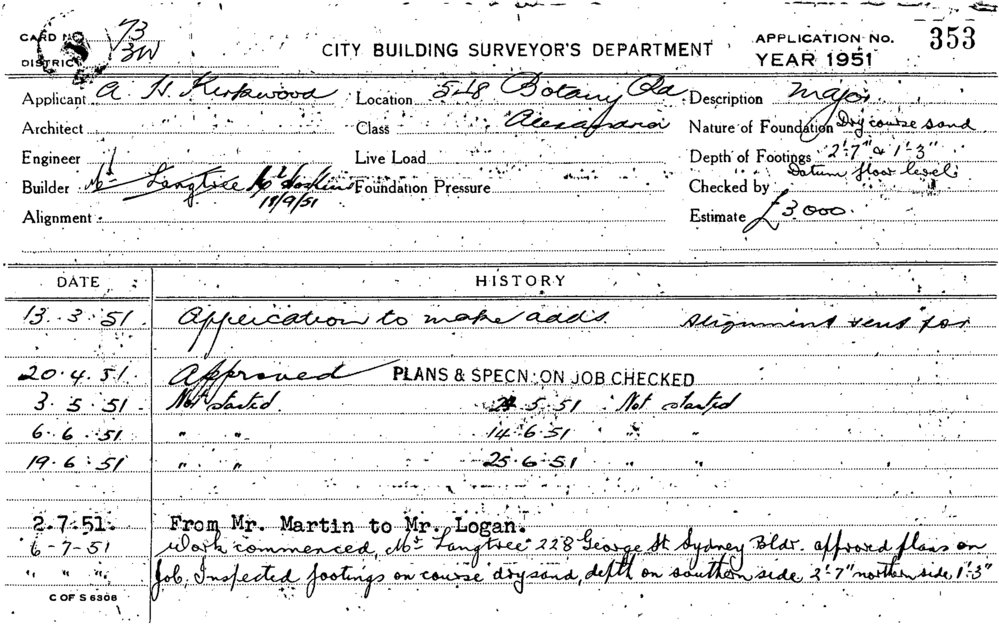 CARD NO 73
DISTRICT 3W
CITY BUILDING SURVEYOR'S DEPARTMENT
APPLICATION NO. 353
YEAR 1951
Applicant A. H. Kirkwood Location Botany Rd Description major
Architect Class Alexandria Nature of Foundation Dry course sand
Engineer Live Load Depth of Footings 2'-7" & 1'-3"
Builder Mr Langtree Mr Hoskins Foundation Pressure Checked by Datum floor level
18/9/51
Alignment Estimate £3000.
DATE HISTORY
13.3.51. Application to make adds. Alignment sent for
20.4.51. Approved PLANS & SPECN. ON JOB CHECKED
3.5.51. Not started. 5.51 Not started
6.6.51 " " 14.6.51 " "
19.6.51 " " 25.6.51 " "
2.7.51. From Mr. Martin to Mr. Logan.
6-7-51 Work commenced, Mr Langtree 228 George St Sydney Bldr. approved plans on
" " " job, Inspected footings on course dry sand, depth on southern side 2'-7" northern side 1'-3"
C OF S 6306